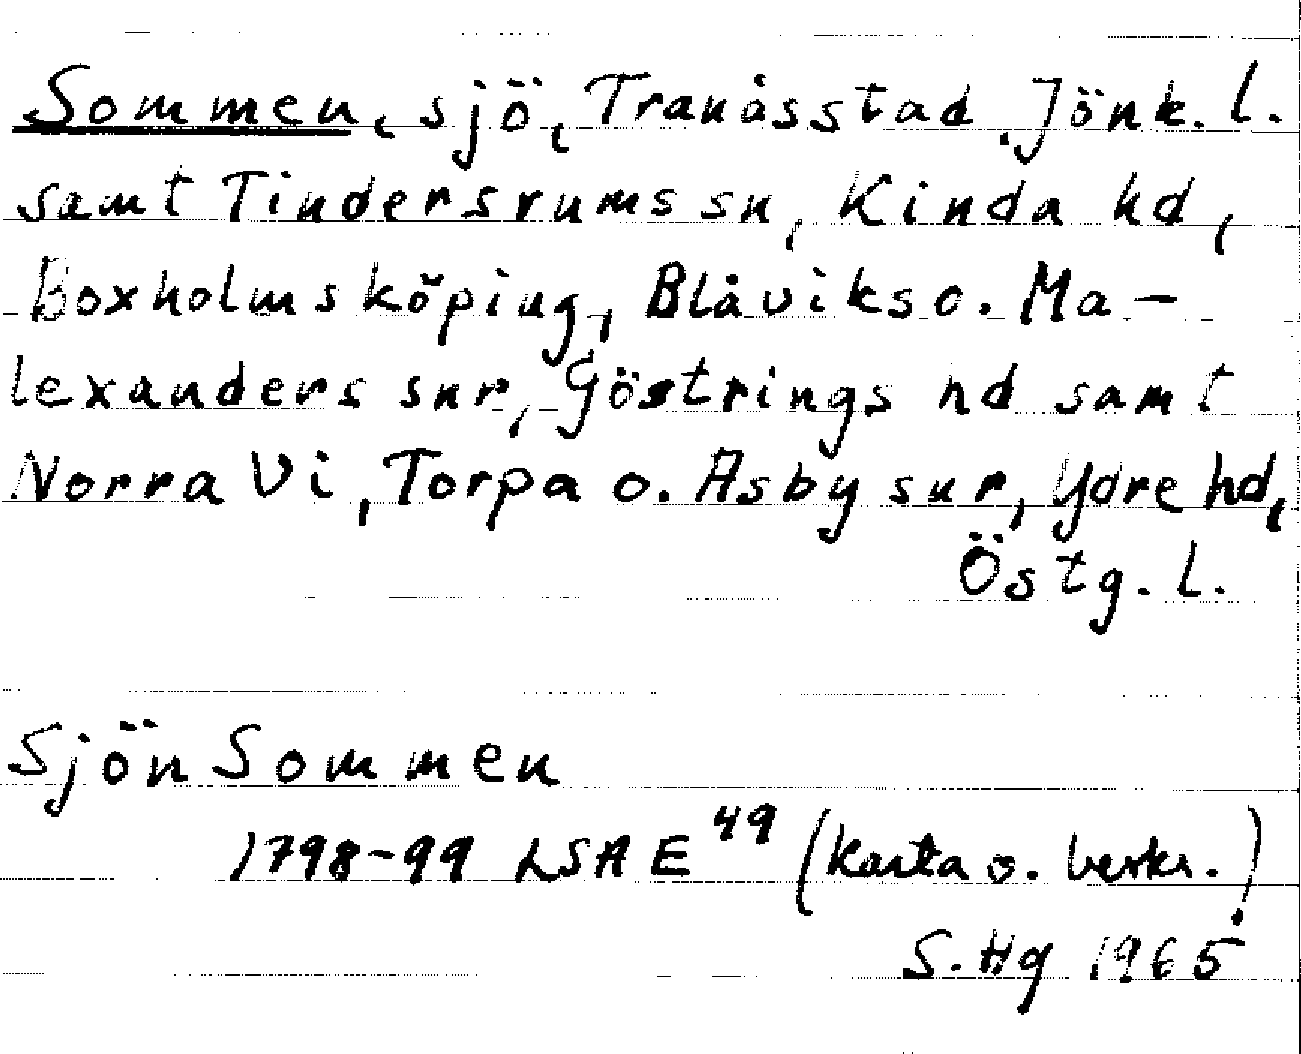 Sommen, sjö, Tranås stad Jönk. l.
samt Tindersrums sn, Kinda hd,
Boxholms köping, Blåviks o. Ma-
lexanders snr, Göstrings hd samt
Norra Vi, Torpa o. Asby snr, Ydre hd,
Östg. l.
Sjön Sommen
1798-99 LSA E 49 (karta o. beskr.)
S. Hg 1965